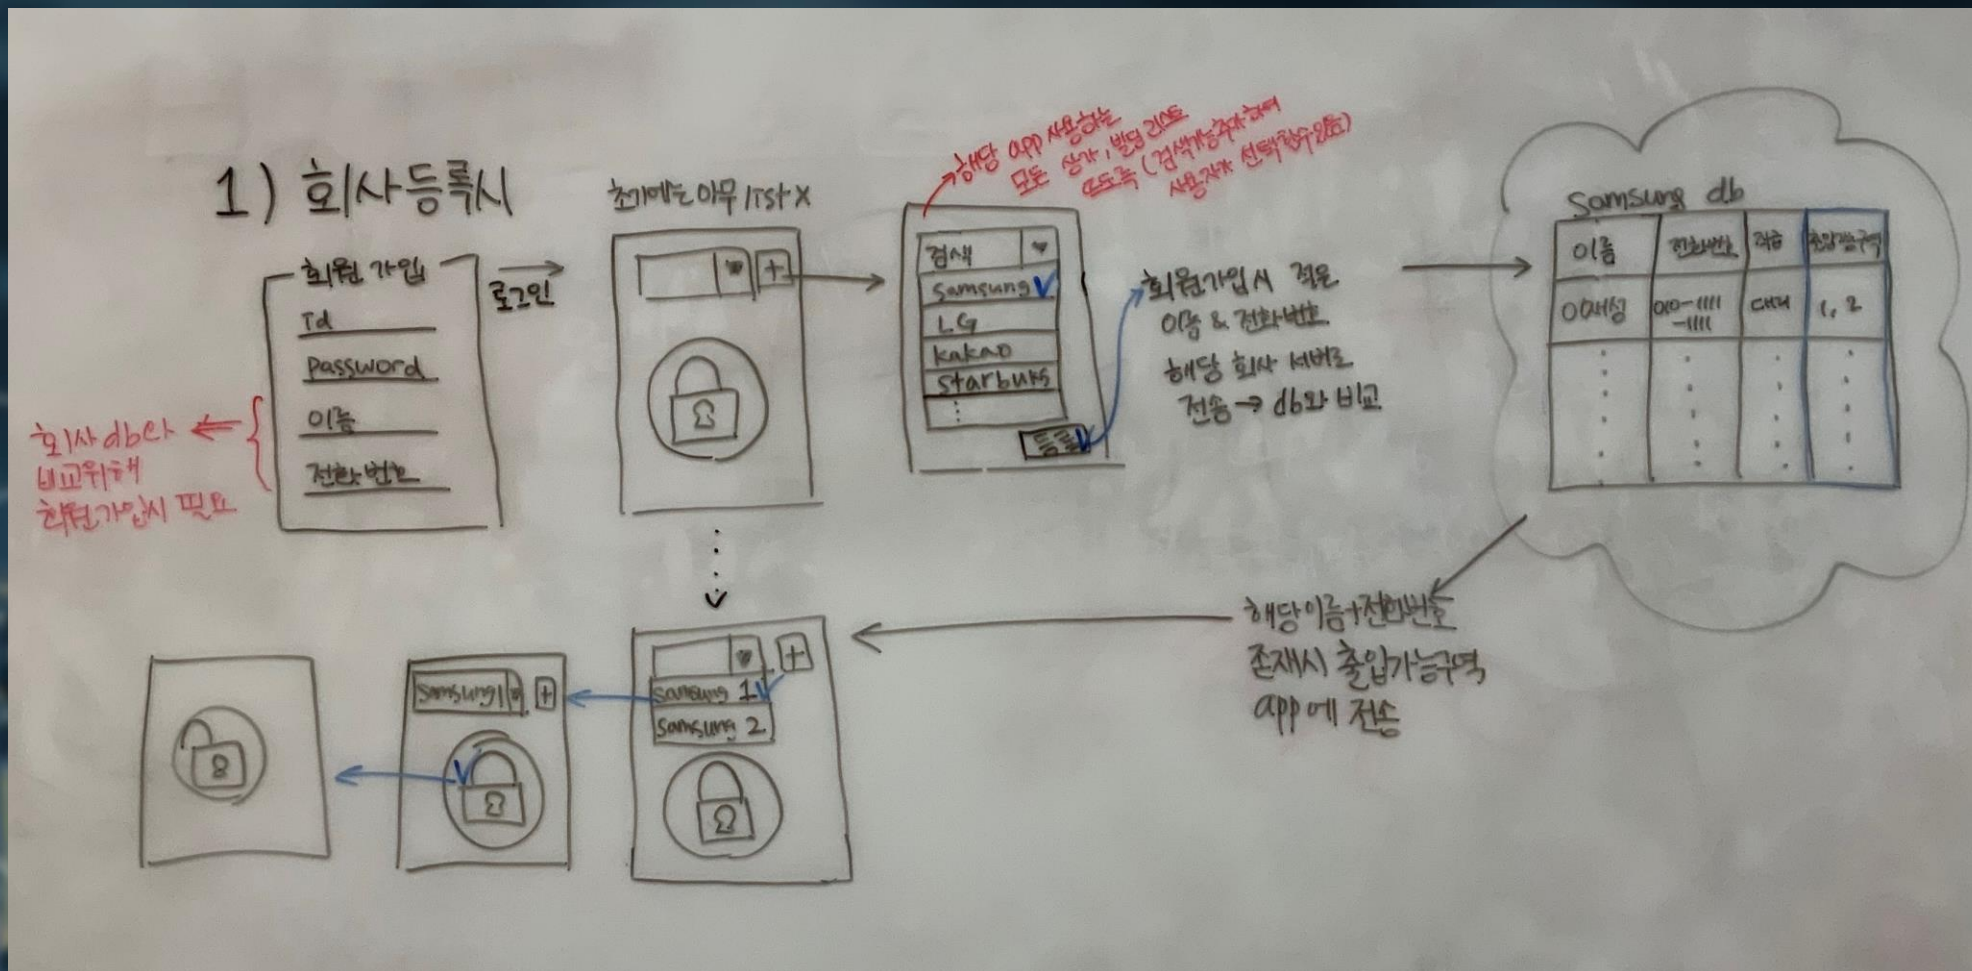 1) 회사등록시
회원 가입
Id
password
이름
전화번호
회사db와
비교위해
회원가입시 필요
로그인
초기에는 아무 list X
+
해당 app 사용하는
모든 상가, 빌딩 리스트
(검색기능추가하여
사용자가 선택할수있음)
검색
samsung
LG
kakao
starbuks
등록
회원가입시 적은
이름 & 전화번호
해당 회사 서버로
전송 → db와 비교
Samsung db
이름 전화번호 직급 출입가능구역
이재성 010-1111-1111 대리 1, 2
해당이름+전화번호
존재시 출입가능구역
app에 전송
+
samsung 1
samsung 2
samsung1 +